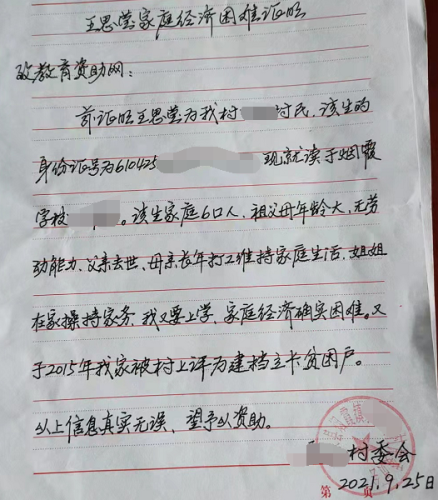 王思莹家庭经济困难证明
致教育资助网:
兹证明王思莹为我村 村民,该生的
身份证号为610425 现就读于烟霞
学校 。该生家庭6口人,祖父母年龄大,无劳
动能力、父亲去世、母亲长年打工维持家庭生活,姐姐
在家操持家务,我又要上学,家庭经济确实困难。又
于2015年我家被村上评为建档立卡贫困户。
以上信息真实无误,望予以资助。
村委会
第 页
2021.9.25日